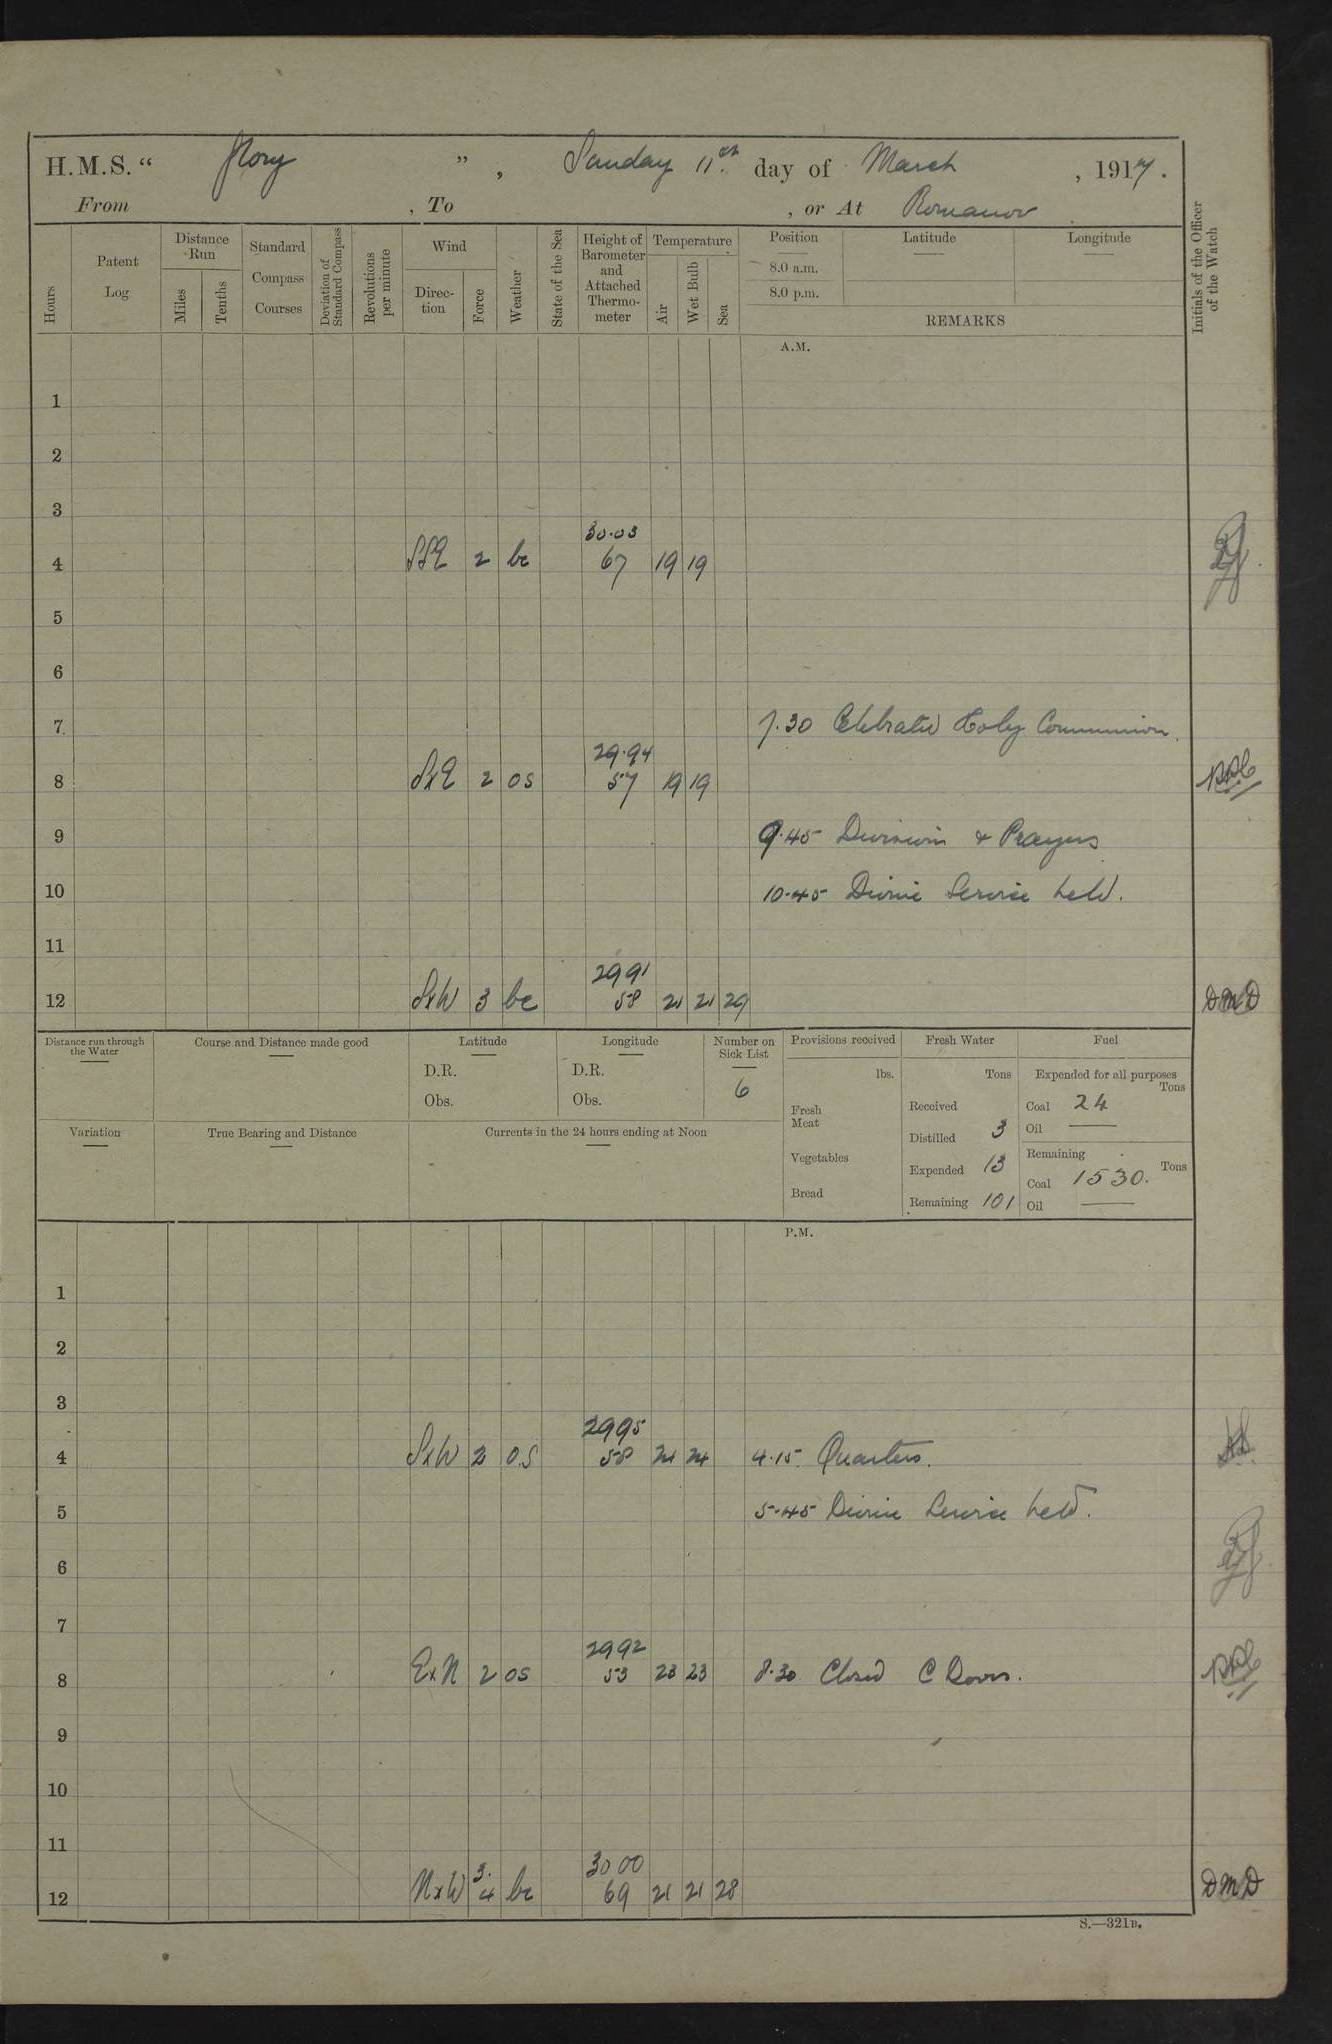 H.M.S. “ Glory ” , Sunday 11th day of March , 1917.
From , To , or At Romanov
Hours
Patent Log
Distance Run
Miles
Tenths
Standard Compass Courses
Deviation of Standard Compass
Revolutions per minute
Wind
Direction
Force
Weather
State of the Sea
Height of Barometer and Attached Thermometer
Temperature
Air
Wet Bulb
Sea
Position
8.0 a.m.
8.0 p.m.
Latitude
Longitude
REMARKS
Initials of the Officer of the Watch
A.M.
1
2
3
30.03
4 SSE 2 bc 67 19 19
5
6
7 7.30 Celebrated Holy Communion.
29.94
8 SxE 2 os 57 19 19
9 9.45 Divisions & Prayers
10 10.45 Divine Service held.
11
29 91
12 SxW 3 bc 58 21 21 29 DMD
Distance run through the Water
Course and Distance made good
Latitude
D.R.
Obs.
Longitude
D.R.
Obs.
Number on Sick List
6
Provisions received
lbs.
Fresh Meat
Vegetables
Bread
Fresh Water
Tons
Received
Distilled 3
Expended 13
Remaining 101
Fuel
Expended for all purposes
Tons
Coal 24
Oil —
Remaining
Tons
Coal 1530.
Oil —
Variation
True Bearing and Distance
Currents in the 24 hours ending at Noon
P.M.
1
2
3
29 95
4 SxW 2 os 58 24 24 4.15 Quarters.
5 5.45 Divine Service held.
6
7
29 92
8 ExN 2 os 53 23 23 8.30 Closed C Doors.
9
10
11
30 00
12 NxW 3.4 bc 69 21 21 28 DMD
S.—321B.